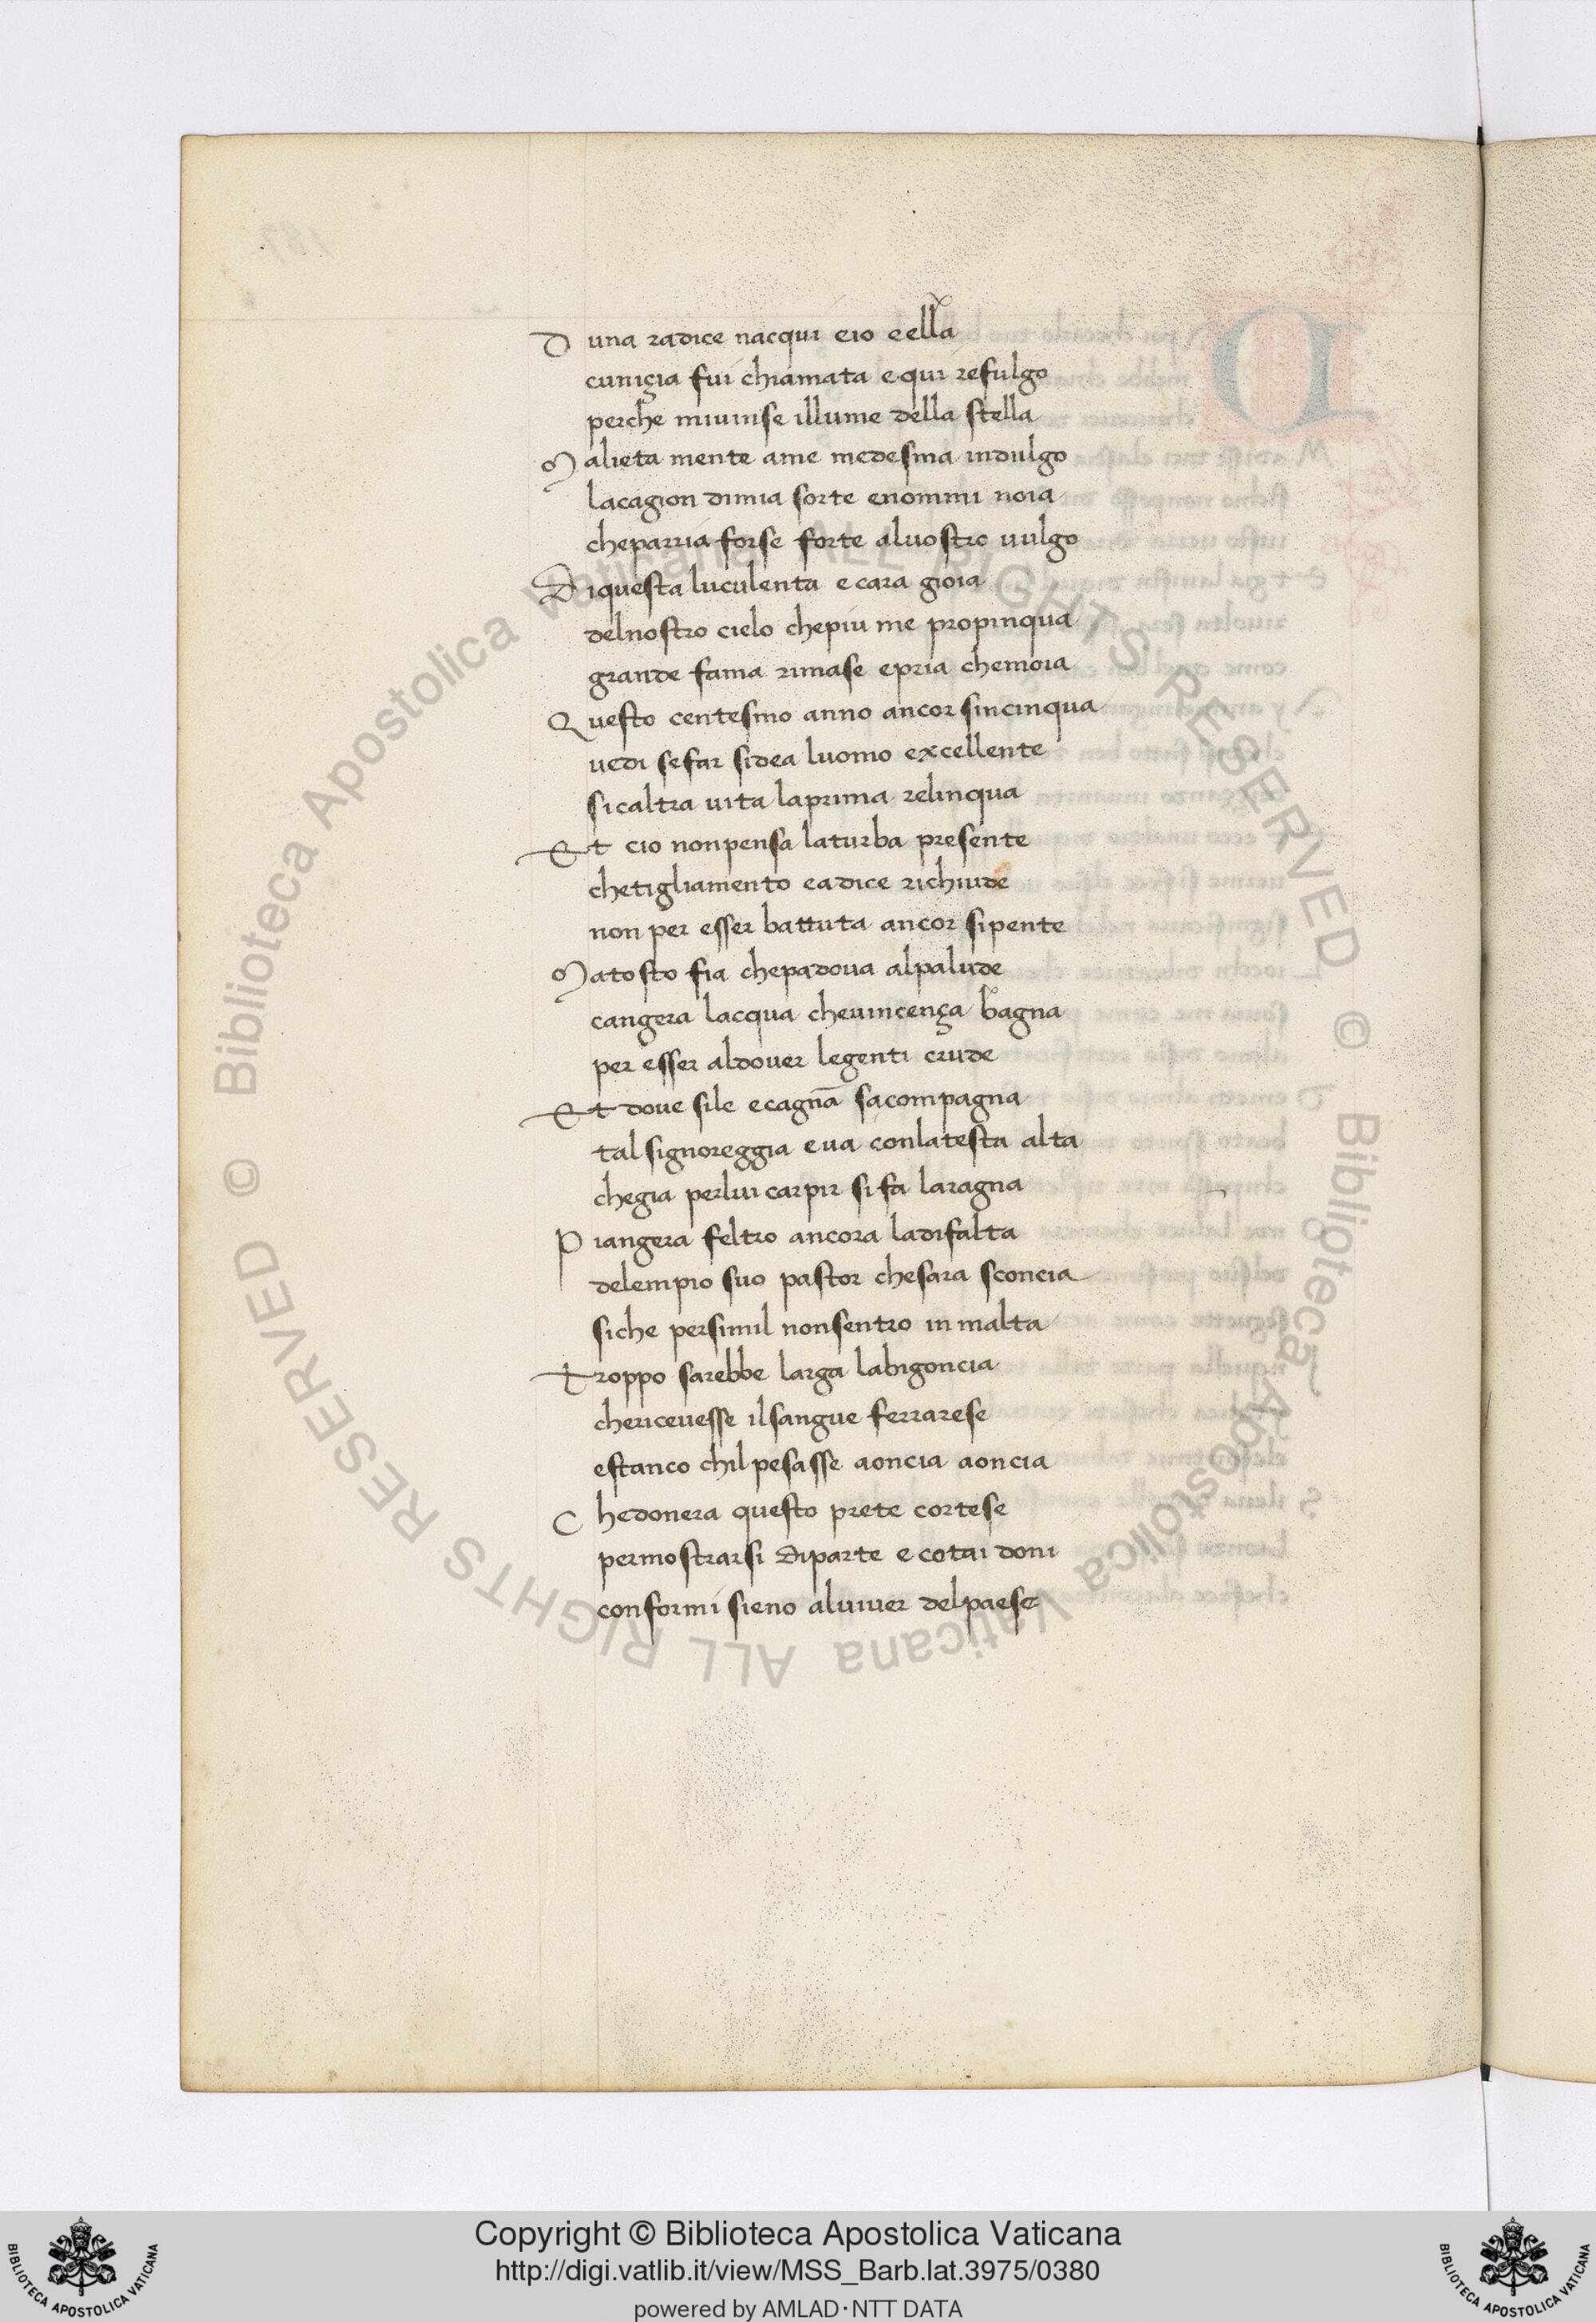 D una radice nacqui eio eella
cuniçia fui chiamata equi refulgo
perche miuinse illume della stella
M alieta mente ame medesma indulgo
lacagion dimia sorte enommi noia
cheparria forse forte aluostro uulgo
D iquesta luculenta ecara gioia
delnostro cielo chepiu me propinqua
grande fama rimase epria chemoia
Q uesto centesmo anno ancor sincinqua
uedi sefar sidea luomo excellente
sicaltra uita laprima relinqua
Et cio nonpensa laturba presente
chetigliamento eadice richiude
non per esser battuta ancor sipente
M atosto fia chepadoua alpalude
cangera lacqua cheuincença bagna
per esser aldouer legenti crude
Et doue sile ecagnā sacompagna
tal signoreggia eua conlatesta alta
chegia perlui carpir si fa laragna
P iangera feltro ancora ladifalta
delempio suo pastor chesara sconcia
siche persimil nonsentro in malta
Troppo sarebbe larga labigoncia
chericeuesse ilsangue ferrarese
estanco chil pesasse aoncia aoncia
C hedonera questo prete cortese
permostrarsi diparte e cotai doni
conformi sieno aluiuer delpaese
© Biblioteca Apostolica Vaticana ALL RIGHTS RESERVED © Biblioteca Apostolica Vaticana ALL RIGHTS RESERVED
Copyright © Biblioteca Apostolica Vaticana
http://digi.vatlib.it/view/MSS_Barb.lat.3975/0380
powered by AMLAD·NTT DATA
BIBLIOTECA APOSTOLICA VATICANA
BIBLIOTECA APOSTOLICA VATICANA